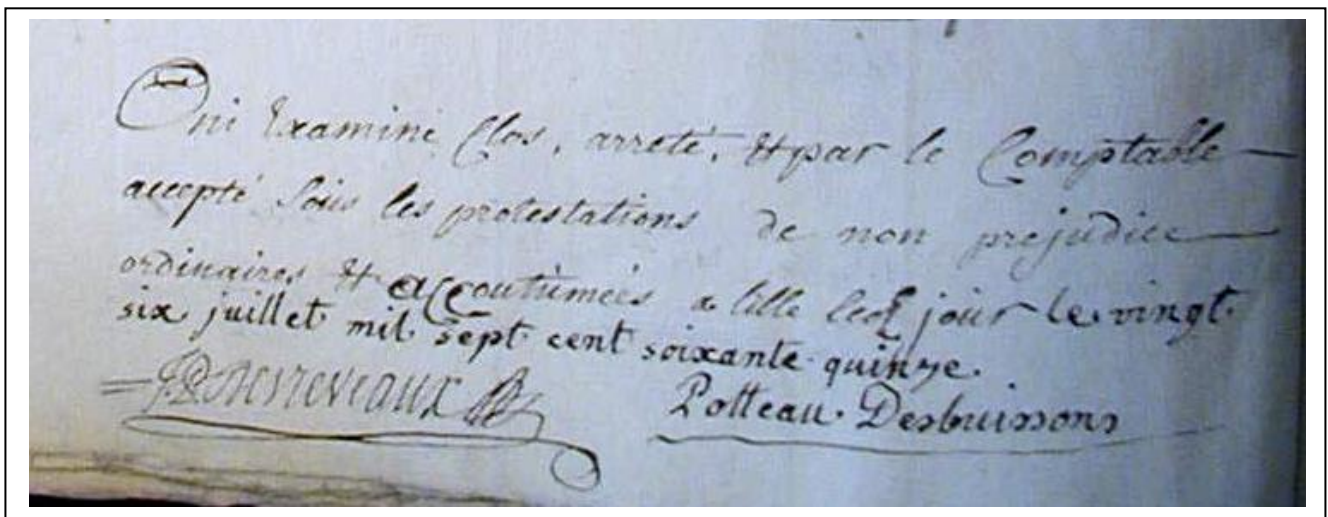 Oui Examiné Clos, arreté, & par le Comptable
accepté sous les protestations de non prejudice
ordinaires & accoutumées a lille jour le vingt
six juillet mil sept cent soixante quinze.
Potteau Desbuissons